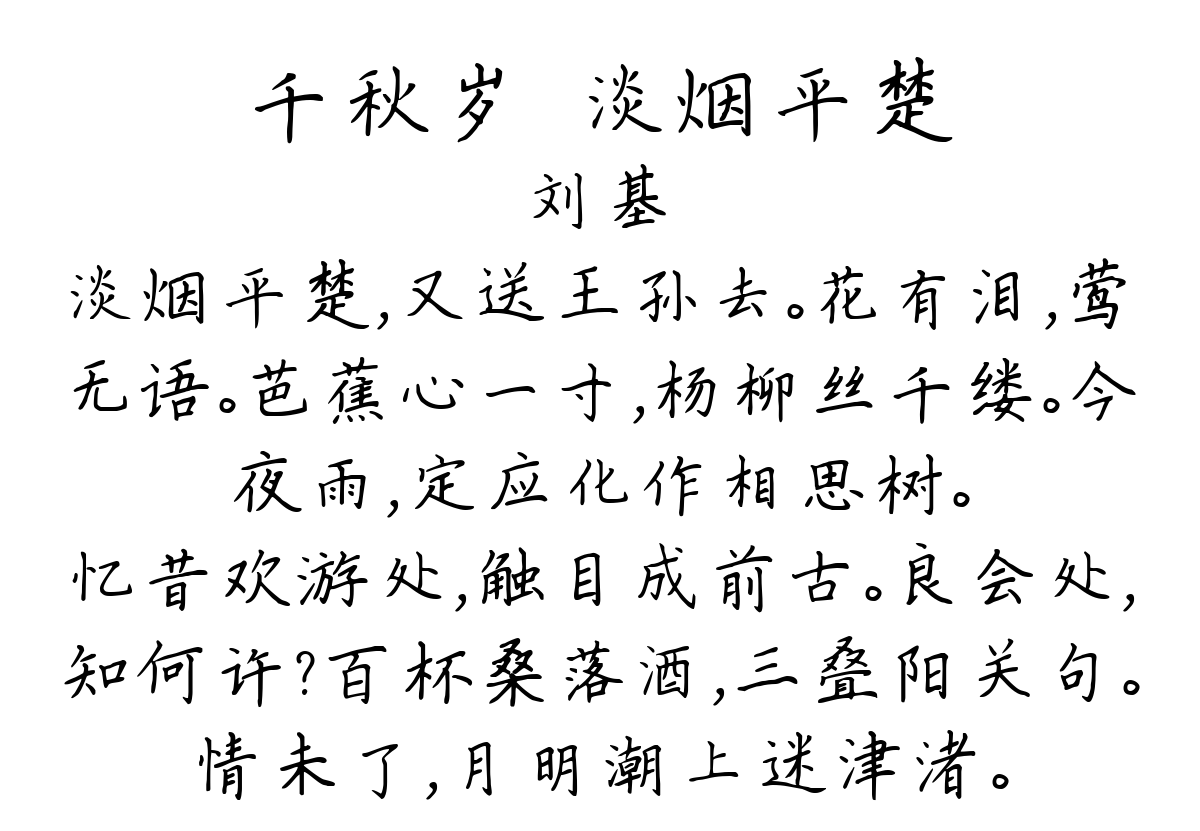 千秋岁 淡烟平楚
刘基
淡烟平楚,又送王孙去。花有泪,莺
无语。芭蕉心一寸,杨柳丝千缕。今
夜雨,定应化作相思树。
忆昔欢游处,触目成前古。良会处,
知何许?百杯桑落酒,三叠阳关句。
情未了,月明潮上迷津渚。